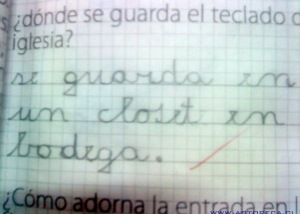 ¿dónde se guarda el teclado d
iglesia?
se guarda en
un closet en
bodega.
¿Cómo adorna la entrada en